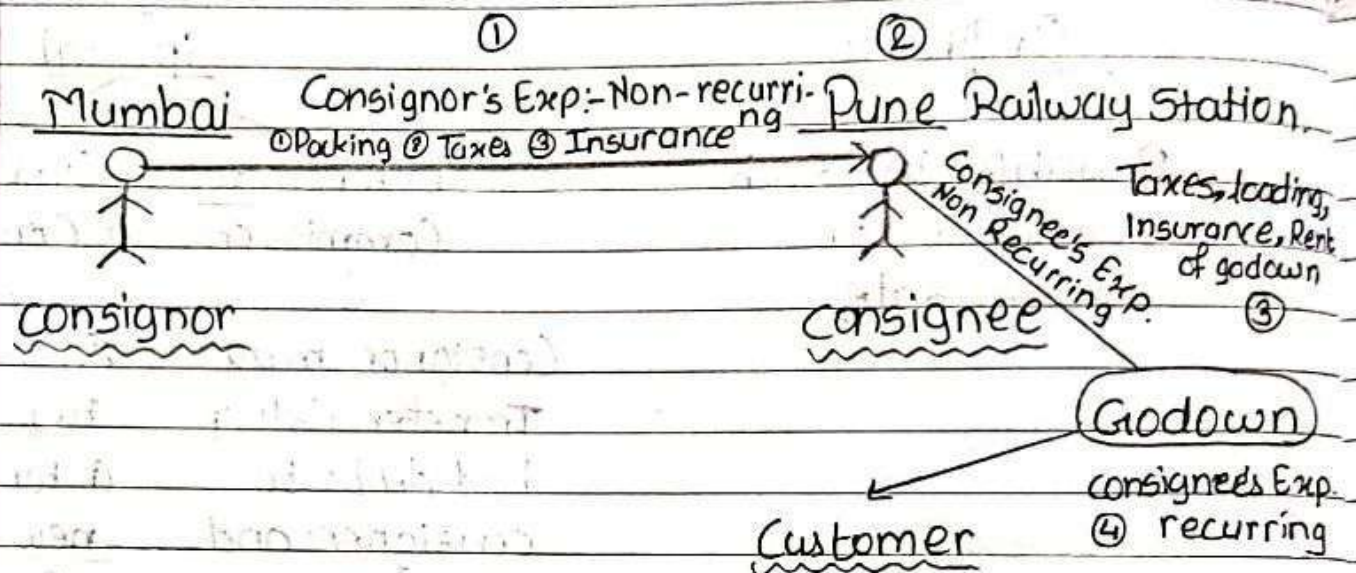 ① ②
Mumbai Consignor's Exp:- Non-recurri-ng Pune Railway Station.
① Packing ② Taxes ③ Insurance
Consignee's Exp.
Non Recurring
Taxes, loading,
Insurance, Rent
of godown
③
consignor consignee
Godown
consignee's Exp.
④ recurring
Customer